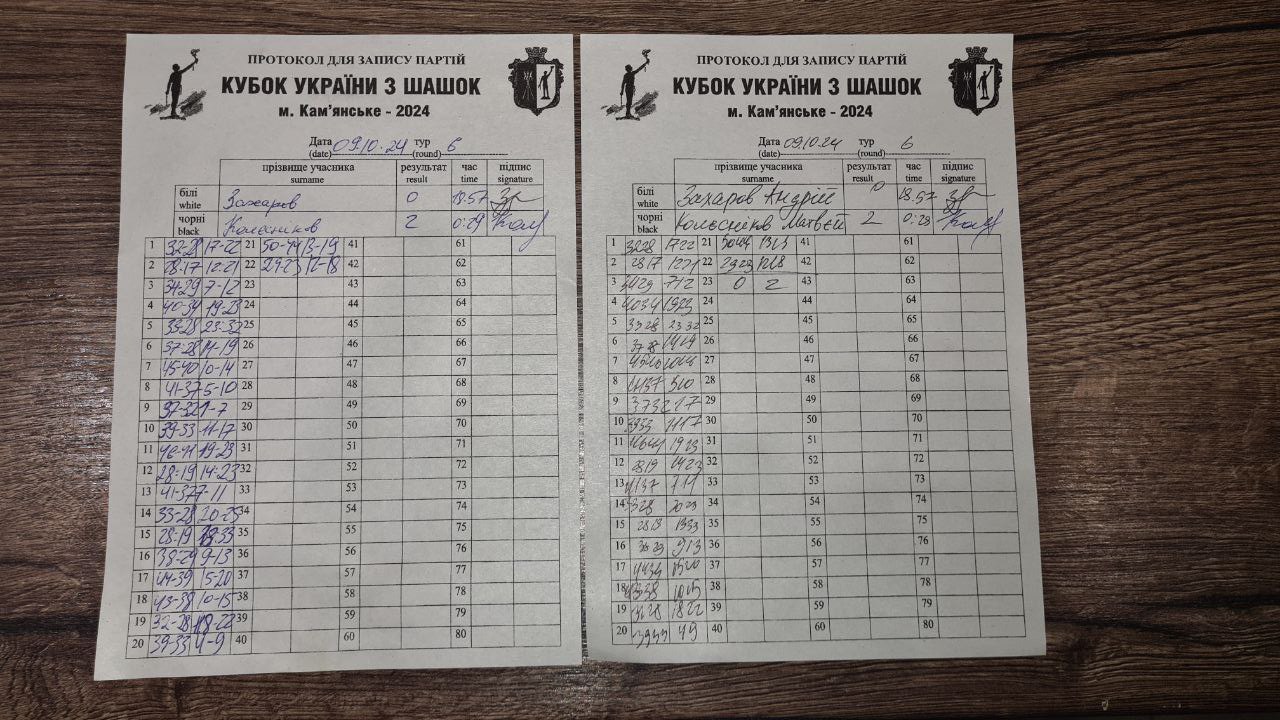 ПРОТОКОЛ ДЛЯ ЗАПИСУ ПАРТІЙ
КУБОК УКРАЇНИ З ШАШОК
м. Кам'янське - 2024
Дата 09.10.24 тур 6
(date) (round)
прізвище учасника результат час підпис
surname result time signature
білі Захаров 0 18.57
white
чорні Колєсніков 2 0:29
black
1 32-28 17-22 21 50-44 13-19 41 61
2 28-17 12-21 22 29-23 12-18 42 62
3 34-29 7-12 23 43 63
4 40-34 19-23 24 44 64
5 33-28 23-32 25 45 65
6 37-28 14-19 26 46 66
7 45-40 10-14 27 47 67
8 41-37 5-10 28 48 68
9 37-32 1-7 29 49 69
10 39-33 11-17 30 50 70
11 46-41 19-23 31 51 71
12 28-19 14-23 32 52 72
13 41-37 7-11 33 53 73
14 33-28 20-25 34 54 74
15 28-19 35 55 75
16 38-29 9-13 36 56 76
17 44-39 15-20 37 57 77
18 43-38 10-15 38 58 78
19 32-28 18-22 39 59 79
20 39-33 4-9 40 60 80
ПРОТОКОЛ ДЛЯ ЗАПИСУ ПАРТІЙ
КУБОК УКРАЇНИ З ШАШОК
м. Кам'янське - 2024
Дата 09.10.24 тур 6
(date) (round)
прізвище учасника результат час підпис
surname result time signature
білі Захаров Андрій 0 18.57
white
чорні Колєсніков Матвєй 2 0:29
black
1 3228 1722 21 5044 1319 41 61
2 2817 1221 22 2923 1218 42 62
3 3429 712 23 0 2 43 63
4 4034 1923 24 44 64
5 3328 2332 25 45 65
6 3728 1419 26 46 66
7 4540 1014 27 47 67
8 4137 510 28 48 68
9 3732 17 29 49 69
10 3933 1117 30 50 70
11 4641 1923 31 51 71
12 2819 1423 32 52 72
13 4137 711 33 53 73
14 3328 34 54 74
15 2819 1333 35 55 75
16 3829 913 36 56 76
17 4439 1520 37 57 77
18 4338 1015 38 58 78
19 3228 1822 39 59 79
20 3933 49 40 60 80